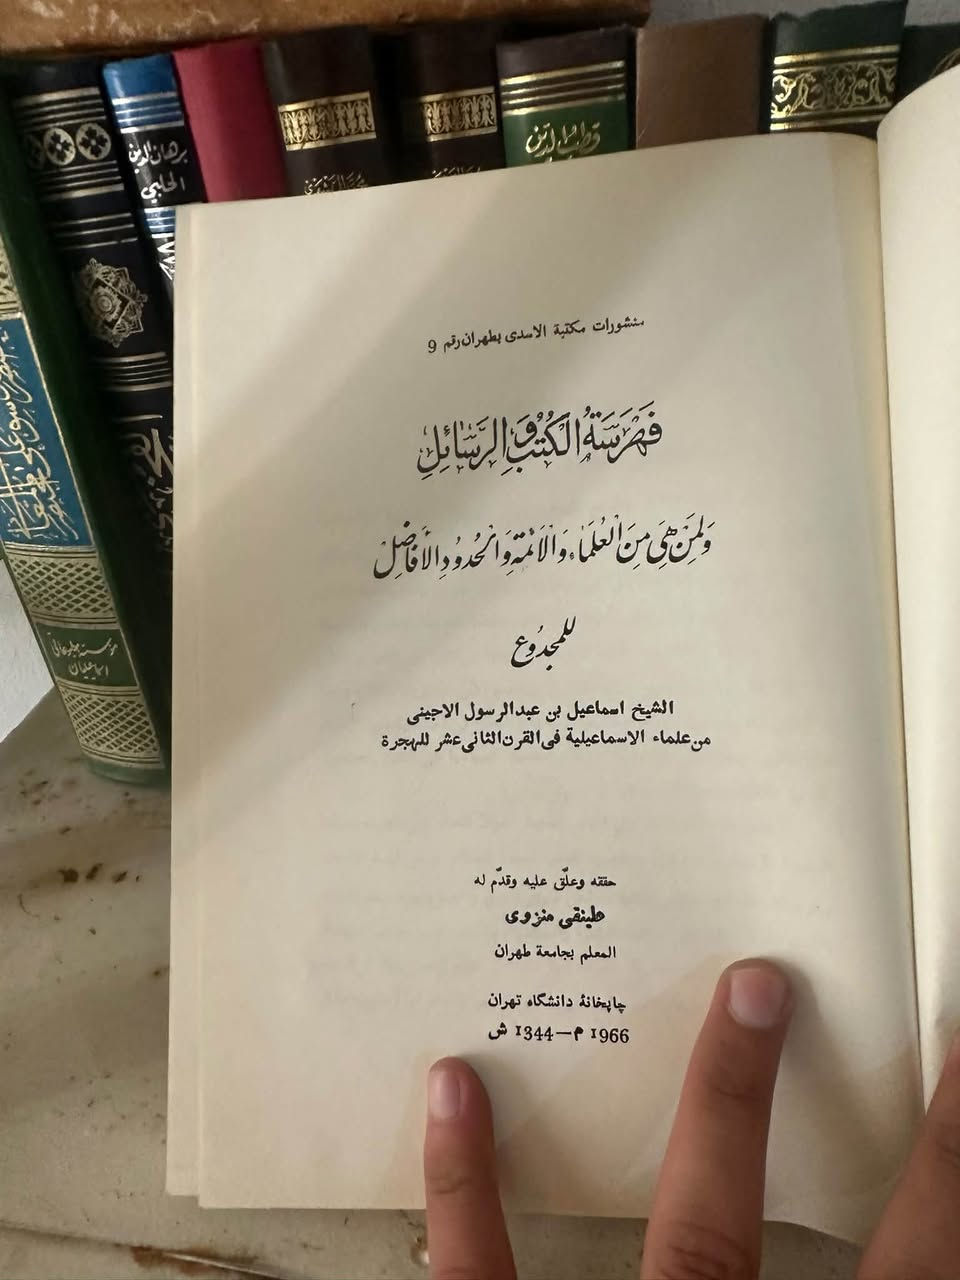 برهان الدين
الحلبي
قطب الدين
مؤسسة مطبوعاتي
اسماعيليان
منشورات مكتبة الاسدى بطهران رقم 9
فَهْرَسَةُ الكُتُبِ وَالرَّسَائِلِ
وَلِمَنْ هِيَ مِنَ الْعُلَمَاءِ وَالْأَئِمَّةِ وَالْحُدُودِ الْأَفَاضِلِ
للمجدُوع
الشيخ اسماعيل بن عبدالرسول الاجينى
من علماء الاسماعيلية فى القرن الثانى عشر للهجرة
حققه وعلّق عليه وقدّم له
علينقى منزوى
المعلم بجامعة طهران
چاپخانهٔ دانشگاه تهران
1966 م — 1344 ش